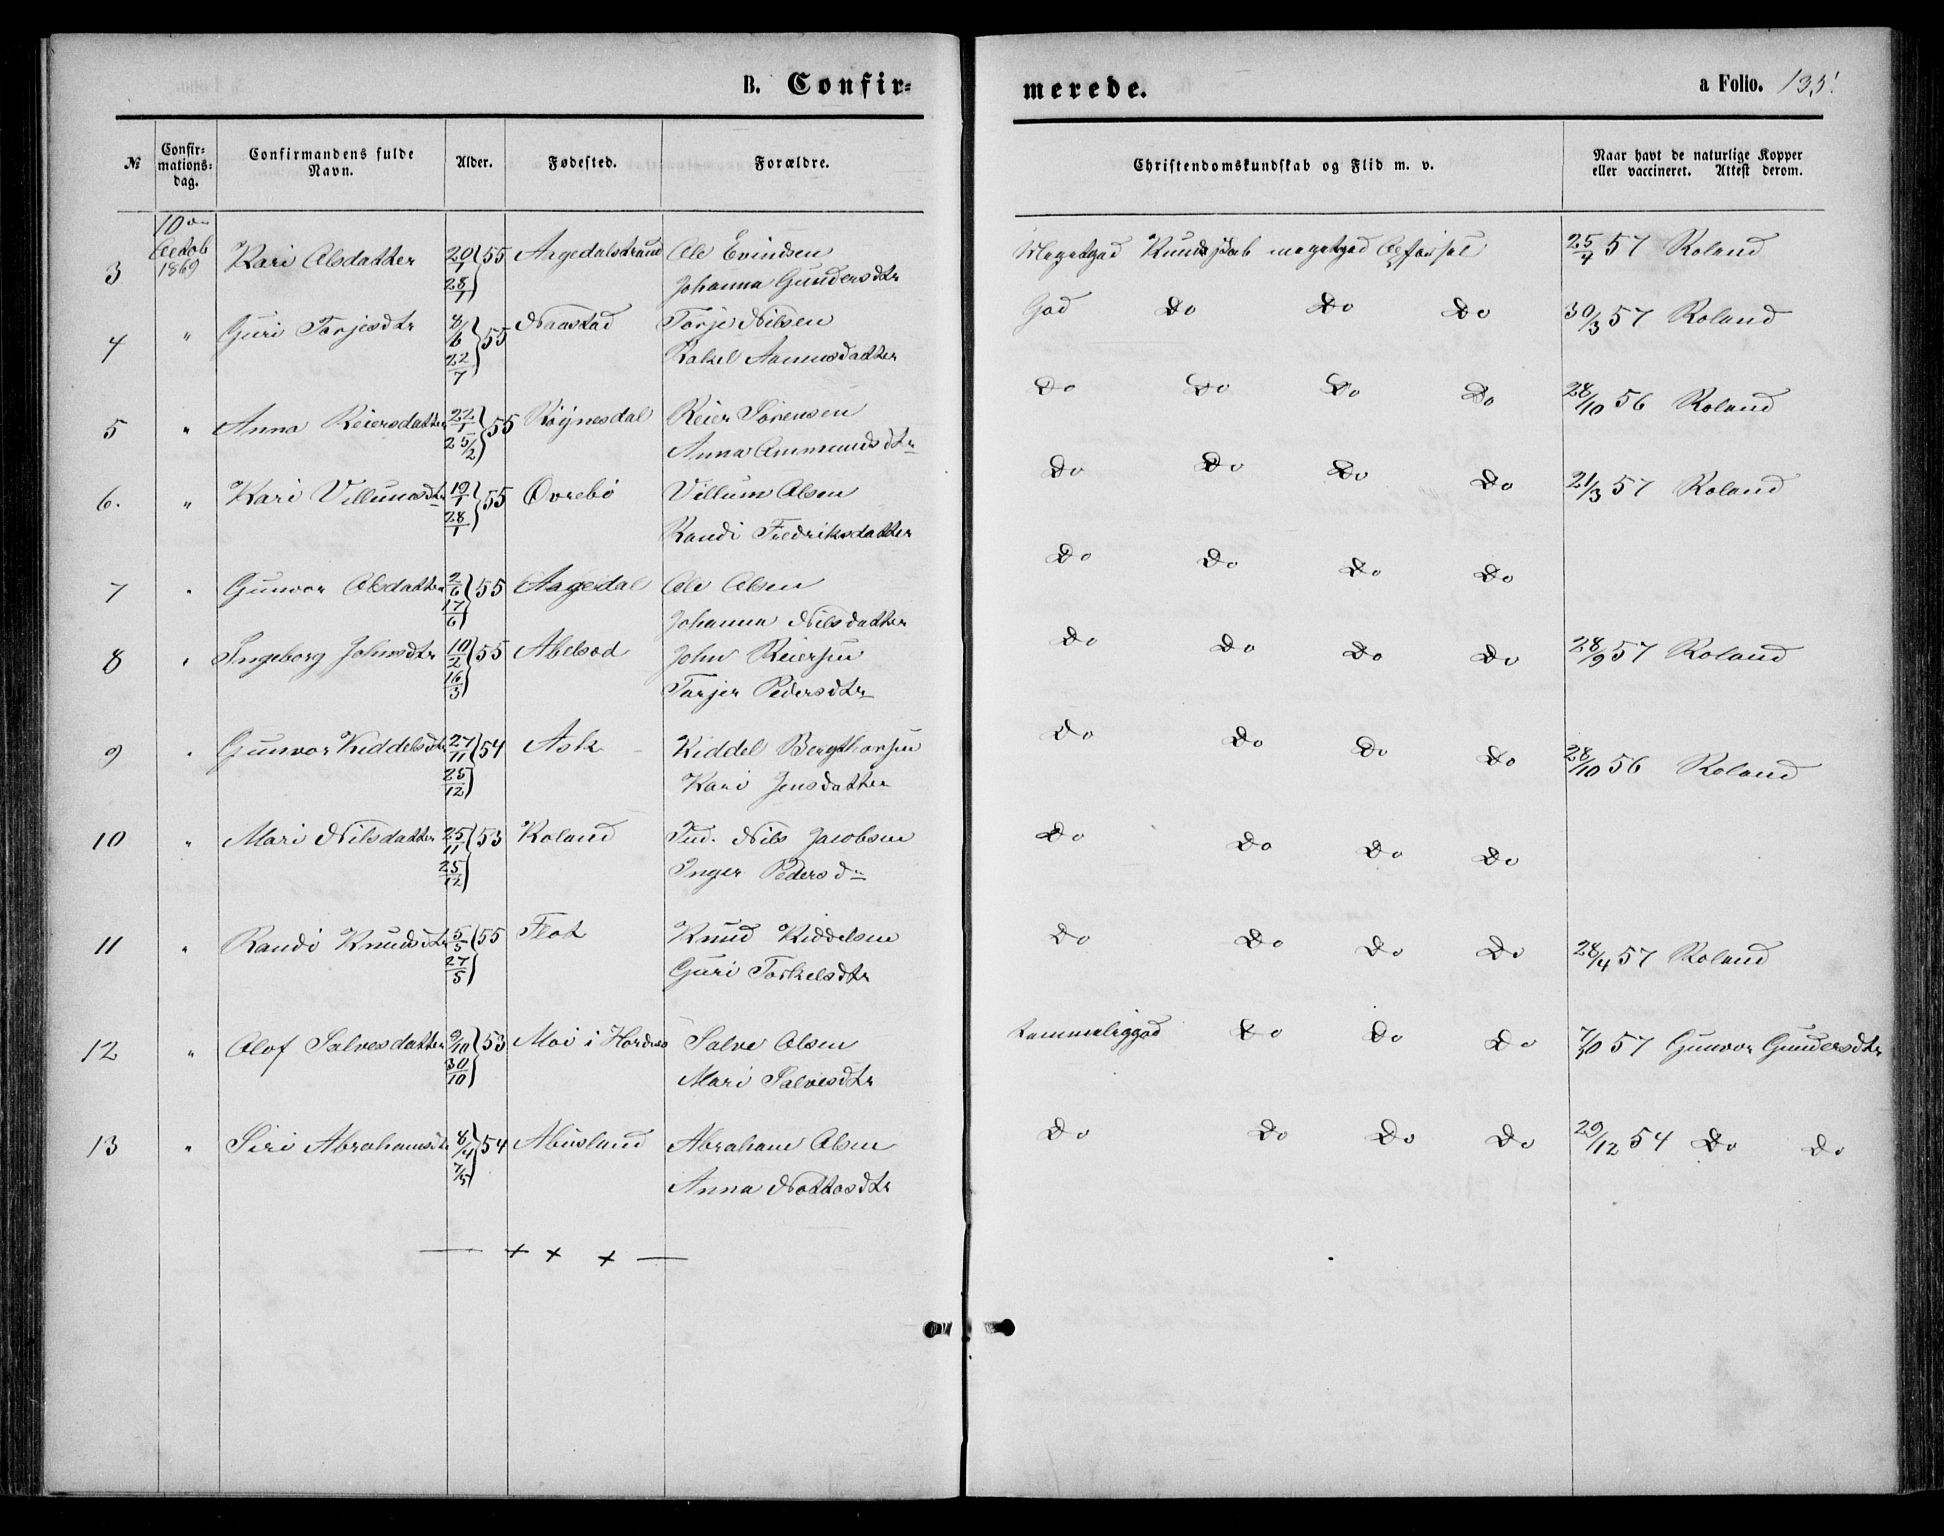 B. Confir-
merede.
a Folio. 135.
№
Confir-
mations-
dag.
Confirmandens fulde
Navn.
Alder.
Fødested.
Forældre.
Christendomskundskab og Flid m. v.
Naar havt de naturlige Kopper
eller vaccineret. Attest derom.
10
Octob
1869
3 Kari Olsdatter 20/1 55 Aagedalstrand Ole Evindsen Megetgod Kundskab megetgod Opførsel 25/4 57 Roland
28/1 Johanna Gundersdtr
4 " Guri Torjesdtr 8/6 55 Naastad Torje Nilsen God Do Do Do 30/3 57 Roland
22/7 Rakel Aanensdatter
5 " Anna Reiersdatter 22/1 55 Røynesdal Reier Sørensen Do Do Do Do 28/10 56 Roland
25/2 Anna Ommundsdtr
6. " Kari Villumsdtr 19/1 55 Øvrebø Villum Olsen Do Do Do Do 21/3 57 Roland
28/1 Randi Fredriksdatter
7 " Gunvor Olsdatter 2/6 55 Aagedal Ole Olsen Do Do Do Do
17/6 Johanna Nilsdatter
8 " Ingeborg Johnsdtr 10/2 55 Abelsød John Reiersen Do Do Do Do 28/9 57 Roland
16/3 Torjer Pedersdtr
9 " Gunvor Kiddelsdtr 27/11 54 Ask Kiddel Bergthorsen Do Do Do Do 28/10 56 Roland
25/12 Kari Jensdatter
10 " Mari Nilsdatter 25/11 53 Roland Ind. Nils Jacobsen Do Do Do Do
25/12 Inger Pedersd
11 " Randi Knudsdtr 5/5 55 Flot Knud Kiddelsen Do Do Do Do 28/4 57 Roland
27/5 Guri Torkelsdtr
12 " Olof Salvesdatter 9/10 53 Moi i Hordnes Salve Olsen Temmeliggod Do Do Do 7/10 57 Gunvor Gundersdtr
30/10 Mari Salvesdtr
13 " Siri Abrahamsdtr 8/4 54 Abusland Abraham Olsen Do Do Do Do 29/12 54 Do Do
7/5 Anna Nottosdtr